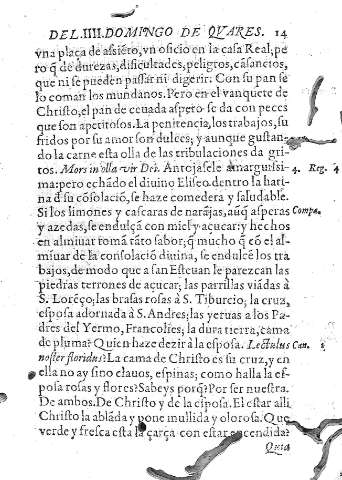 DEL IIII. DOMINGO DE QVARES. 14
vna plaça de assiẽto, vn oficio en la casa Real; pe
ro q̃ de durezas, dificultades, peligros, cãsancios,
que ni se pueden passar ni digerir: Con su pan se
lo coman los mundanos. Pero en el vanquete de
Christo, el pan de ceuada aspero se da con peces
que son apetitosos. La penitencia, los trabajos, su
fridos por su amor son dulces; y aunque gustan-
do la carne esta olla de las tribulaciones da gri-
tos. Mors in olla vir Dei. Antojasele amarguissi- 4. Reg. 4
ma: pero echãdo el diuino Eliseo dentro la hari-
na d̃ su cõsolaciõ, se haze comedera y saludable.
Si los limones y cascaras de narãjas, aũq̃ asperas Compa.
y azedas, se endulçã con miel y açucar: y hechos
en almiuar tomã tãto sabor; q̃ mucho q̃ cõ el al-
miuar de la consolaciõ diuina, se endulcẽ los tra
bajos, de modo que a san Esteuan le parezcan las
piedras terrones de açucar; las parrillas viãdas à
S. Lorẽço; las brasas rosas à S. Tiburcio; la cruz,
esposa adornada à S. Andres; las yeruas a los Pa-
dres del Yermo, Francolies; la dura tierra, cama
de pluma? Quien haze dezir à la esposa. Lectulus Can.
noster floridus? La cama de Christo es su cruz, y en
ella no ay sino clauos, espinas; como halla la es-
posa rosas y flores? Sabeys porq̃? Por ser nuestra.
De ambos. De Christo y de la esposa. El estar alli
Christo la ablãda y pone mullida y olorosa. Que
verde y fresca esta la çarça con estar encendida?
Quia